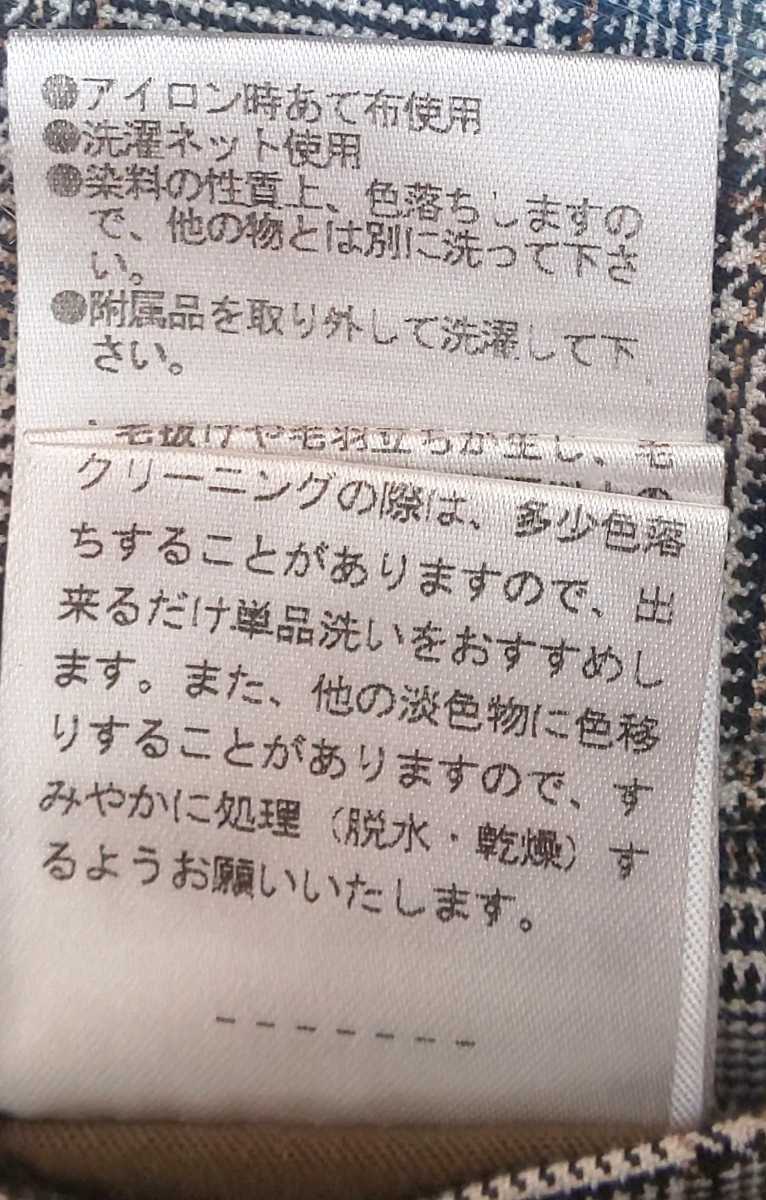 ●アイロン時あて布使用
●洗濯ネット使用
●染料の性質上、色落ちしますの
で、他の物とは別に洗って下さ
い。
●附属品を取り外して洗濯して下
さい。
毛抜けや毛羽立ちが生じ、毛
クリーニングの際は、多少色落
ちすることがありますので、出
来るだけ単品洗いをおすすめし
ます。また、他の淡色物に色移
りすることがありますので、す
みやかに処理（脱水・乾燥）す
るようお願いいたします。
-------